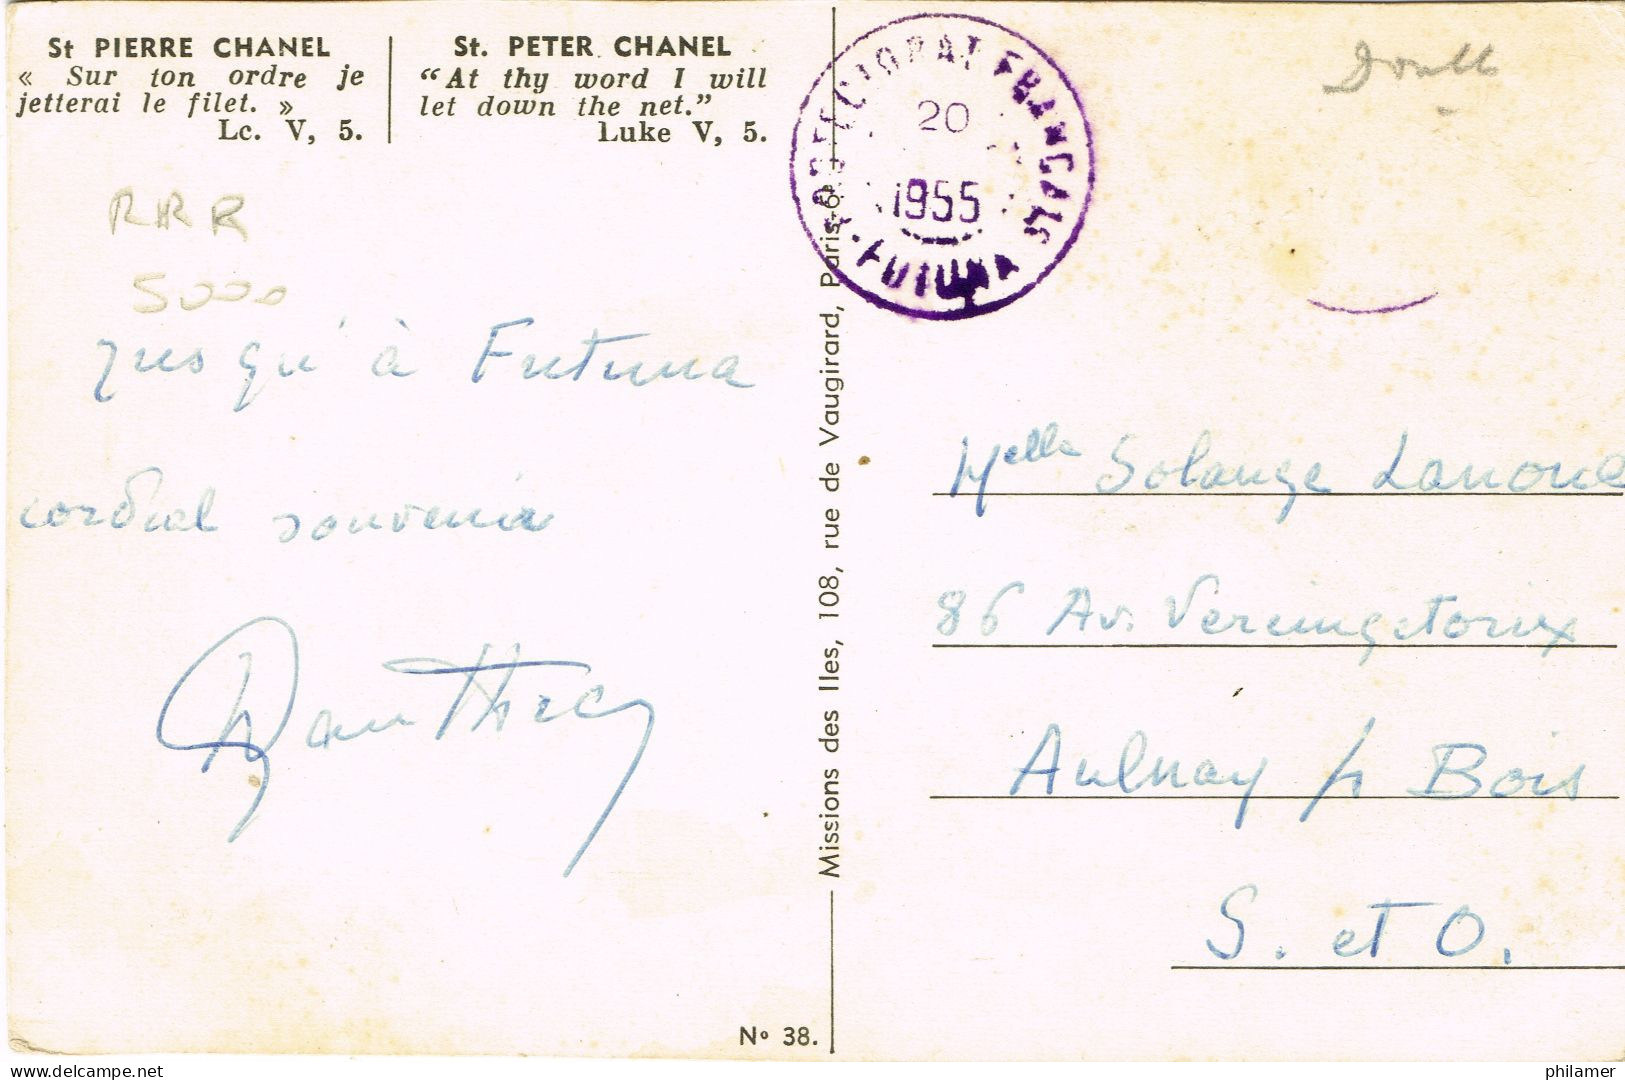 St PIERRE CHANEL
« Sur ton ordre je
jetterai le filet. »
Lc. V, 5.
St. PETER CHANEL
“At thy word I will
let down the net.”
Luke V, 5.
PROTECTORAT FRANÇAIS
20
1955
FUTUNA
RRR
5000
jusqu'à Futuna
cordial souvenir
Missions des Iles, 108, rue de Vaugirard, Paris-6e
Melle Solange Lanoue
86 Av. Vercingetorix
Aulnay s/ Bois
S. et O.
No 38.
delcampe.net
philamer